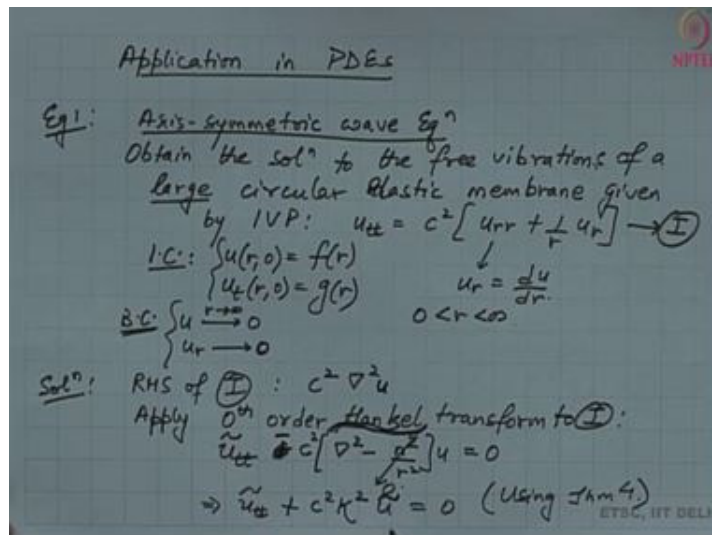 Application in PDEs
NPTEL
Eg 1: Axis-symmetric wave Eqⁿ
Obtain the solⁿ to the free vibrations of a
large circular elastic membrane given
by IVP: u_tt = c²[u_rr + 1/r u_r] → (I)
I.C.: { u(r,0) = f(r)
u_t(r,0) = g(r)
u_r = du/dr.
0 < r < ∞
B.C. { u →^{r→∞} 0
u_r → 0
Solⁿ: RHS of (I) : c² ∇²u
Apply 0th order Hankel transform to (I):
ũ_tt - c²[∇² - n²/r²]u = 0
⇒ ũ_tt + c²κ² ũ = 0 (Using Thm 4.)
ETSC, IIT DELHI